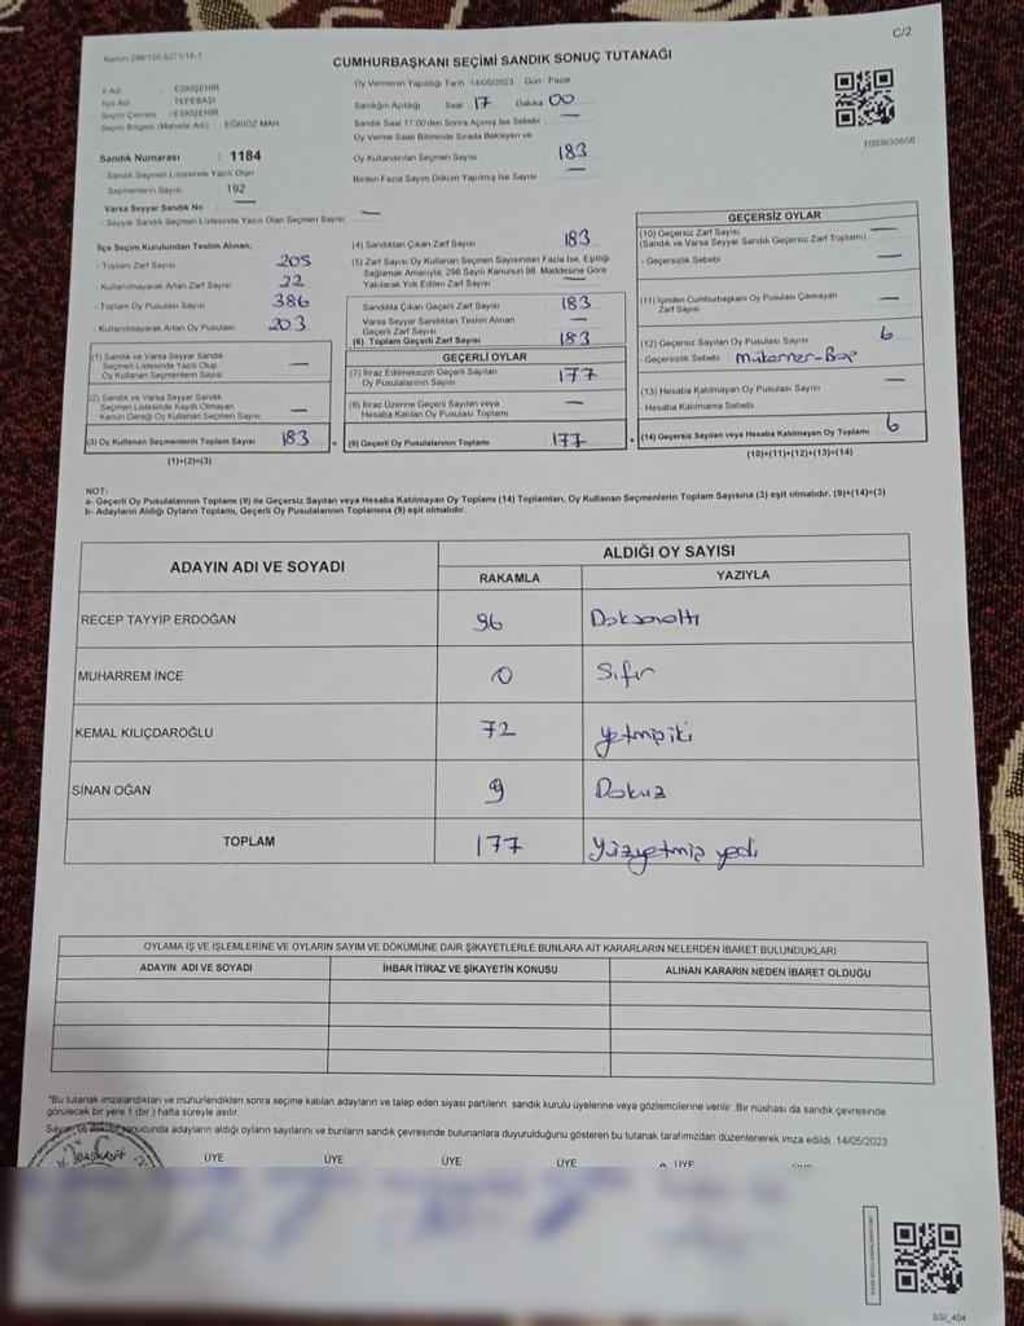 C/2
CUMHURBAŞKANI SEÇİMİ SANDIK SONUÇ TUTANAĞI
İl Adı : ESKİŞEHİR
İlçe Adı : TEPEBAŞI
Seçim Çevresi : ESKİŞEHİR
Seçim Bölgesi (Mahalle Adı) : EĞRİÖZ MAH
Sandık Numarası : 1184
Sandık Seçmen Listesinde Yazılı Olan
Seçmenlerin Sayısı 192
Varsa Seyyar Sandık No —
Seyyar Sandık Seçmen Listesinde Yazılı Olan Seçmen Sayısı —
Oy Vermenin Yapıldığı Tarih 14/05/2023 Gün: Pazar
Sandığın Açıldığı Saat 17 Dakika 00
Sandık Saat 17:00'den Sonra Açılmış İse Sebebi —
Oy Verme Saati Bitiminde Sırada Bekleyen ve
Oy Kullandırılan Seçmen Sayısı 183
Birden Fazla Sayım Döküm Yapılmış İse Sayısı —
İlçe Seçim Kurulundan Teslim Alınan;
- Toplam Zarf Sayısı 205
- Kullanılmayarak Artan Zarf Sayısı 22
- Toplam Oy Pusulası Sayısı 386
- Kullanılmayarak Artan Oy Pusulası 203
(1) Sandık ve Varsa Seyyar Sandık
Seçmen Listesinde Yazılı Olup
Oy Kullanan Seçmenlerin Sayısı —
(2) Sandık ve Varsa Seyyar Sandık
Seçmen Listesinde Kayıtlı Olmayan
Kanun Gereği Oy Kullanan Seçmen Sayısı —
(3) Oy Kullanan Seçmenlerin Toplam Sayısı 183
(1)+(2)=(3)
(4) Sandıktan Çıkan Zarf Sayısı 183
(5) Zarf Sayısı Oy Kullanan Seçmen Sayısından Fazla İse, Eşitliği
Sağlamak Amacıyla, 298 Sayılı Kanunun 98. Maddesine Göre
Yakılarak Yok Edilen Zarf Sayısı —
Sandıkta Çıkan Geçerli Zarf Sayısı 183
Varsa Seyyar Sandıktan Teslim Alınan
Geçerli Zarf Sayısı —
(6) Toplam Geçerli Zarf Sayısı 183
GEÇERLİ OYLAR
(7) İtiraz Edilmeksizin Geçerli Sayılan
Oy Pusulalarının Sayısı 177
(8) İtiraz Üzerine Geçerli Sayılan veya
Hesaba Katılan Oy Pusulası Toplamı —
(9) Geçerli Oy Pusulalarının Toplamı 177
GEÇERSİZ OYLAR
(10) Geçersiz Zarf Sayısı
(Sandık ve Varsa Seyyar Sandık Geçersiz Zarf Toplamı) —
- Geçersizlik Sebebi —
(11) İçinden Cumhurbaşkanı Oy Pusulası Çıkmayan
Zarf Sayısı —
(12) Geçersiz Sayılan Oy Pusulası Sayısı 6
- Geçersizlik Sebebi
(13) Hesaba Katılmayan Oy Pusulası Sayısı —
- Hesaba Katılmama Sebebi
(14) Geçersiz Sayılan veya Hesaba Katılmayan Oy Toplamı 6
(10)+(11)+(12)+(13)=(14)
NOT:
a- Geçerli Oy Pusulalarının Toplamı (9) ile Geçersiz Sayılan veya Hesaba Katılmayan Oy Toplamı (14) Toplamları, Oy Kullanan Seçmenlerin Toplam Sayısına (3) eşit olmalıdır. (9)+(14)=(3)
b- Adayların Aldığı Oyların Toplamı, Geçerli Oy Pusulalarının Toplamına (9) eşit olmalıdır.
ADAYIN ADI VE SOYADI
ALDIĞI OY SAYISI
RAKAMLA YAZIYLA
RECEP TAYYİP ERDOĞAN 96 Doksanaltı
MUHARREM İNCE 0 Sıfır
KEMAL KILIÇDAROĞLU 72 yetmişiki
SİNAN OĞAN 9 Dokuz
TOPLAM 177 Yüzyetmiş yedi
OYLAMA İŞ VE İŞLEMLERİNE VE OYLARIN SAYIM VE DÖKÜMÜNE DAİR ŞİKAYETLERLE BUNLARA AİT KARARLARIN NELERDEN İBARET BULUNDUKLARI
ADAYIN ADI VE SOYADI İHBAR İTİRAZ VE ŞİKAYETİN KONUSU ALINAN KARARIN NEDEN İBARET OLDUĞU
"Bu tutanak imzalandıktan ve mühürlendikten sonra seçime katılan adayların ve talep eden siyasi partilerin sandık kurulu üyelerine veya gözlemcilerine verilir. Bir nüshası da sandık çevresinde
görülecek bir yere 1 (bir) hafta süreyle asılır.
Sayım ve döküm sonucunda adayların aldığı oyların sayılarını ve bunların sandık çevresinde bulunanlara duyurulduğunu gösteren bu tutanak tarafımızdan düzenlenerek imza edildi. 14/05/2023
ÜYE ÜYE ÜYE ÜYE ÜYE